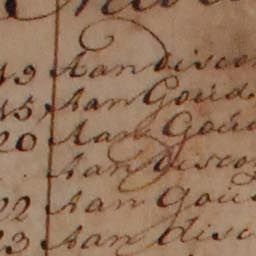 19 Aan discon
15 Aan Goud
20 Aan Goud
Aan discon
22 Aan Goud
23 Aan disc